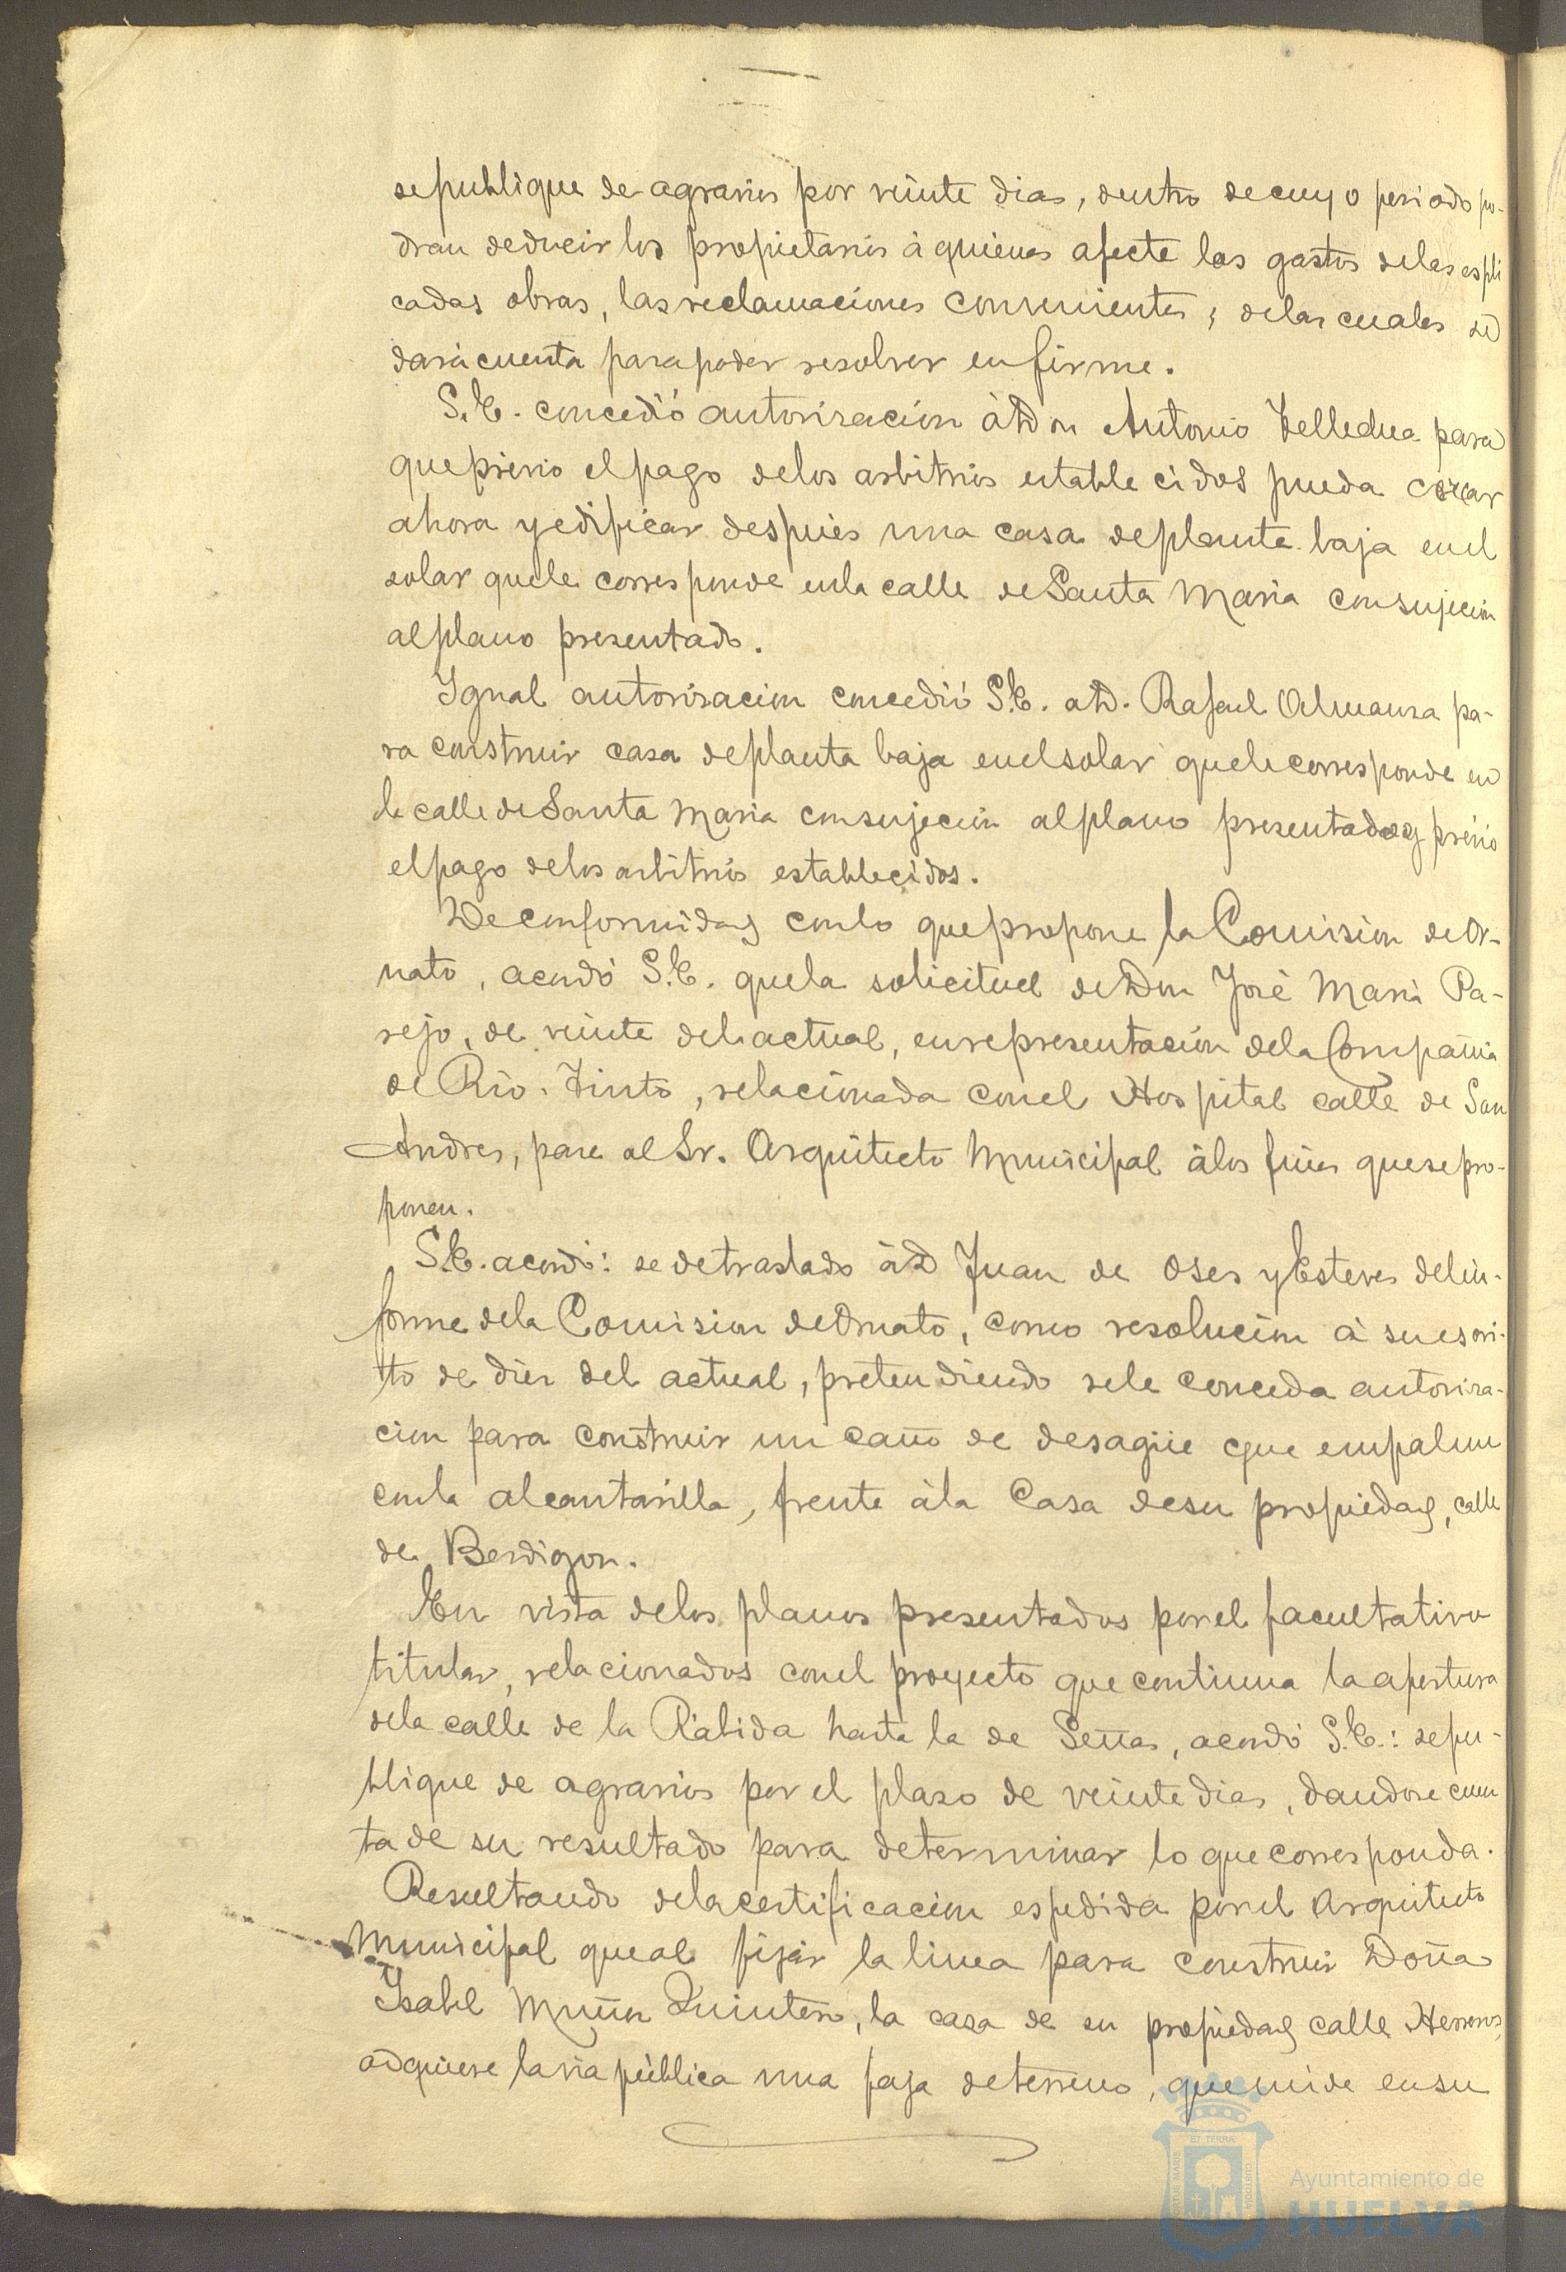 se publique de agravios por veinte dias, dentro de cuyo periodo po-
dran deducir los propietarios à quienes afecte los gastos de las espli
cadas obras, las reclamaciones convenientes, de las cuales se
dará cuenta para poder resolver en firme.
S. E. concedió autorizacion à Don Antonio para
que prévio el pago de los arbitrios establecidos pueda cercar
ahora y edificar después una casa de planta baja en el
solar que le corresponde en la calle de Santa Maria con sujecion
al plano presentado.
Igual autorizacion concedió S. E. a D. Rafael Almansa pa-
ra construir casa de planta baja en el solar que le corresponde en
la calle de Santa Maria con sujeción al plano presentado y prévio
el pago de los arbitrios establecidos.
De conformidad con lo que propone la Comision de Or-
nato, acordó S. E. que la solicitud de Don José Maria Pa-
rejo, de veinte del actual, en representación de la Compañia
de Rio-Tinto, relacionada con el Hospital calle de San
Andres, pase al Sr. Arquitecto Municipal à los fines que se pro-
ponen.
S. E. acordó: se de traslado à D Juan de Oses y Esteves del in-
forme de la Comision de Ornato, como resolucion à su escri-
to de diez del actual, pretendiendo se le conceda autoriza-
cion para construir un caño de desagüe que empalme
con la alcantarilla, frente à la Casa de su propiedad, calle
de Berdigon.
En vista de los planos presentados por el facultativo
titular, relacionados con el proyecto que continua la apertura
de la calle de la Rábida hasta la de Señas, acordó S. E.: se pu-
blique de agravios por el plazo de veinte dias, dandose cuen
ta de su resultado para determinar lo que corresponda.
Resultando de la certificacion espedida por el Arquitecto
Municipal que al fijar la linea para construir Doña
Isabel Muñoz Quintero, la casa de su propiedad calle Herreros,
adquiere la via pública una faja de terreno, que mide en su
Ayuntamiento de
HUELVA